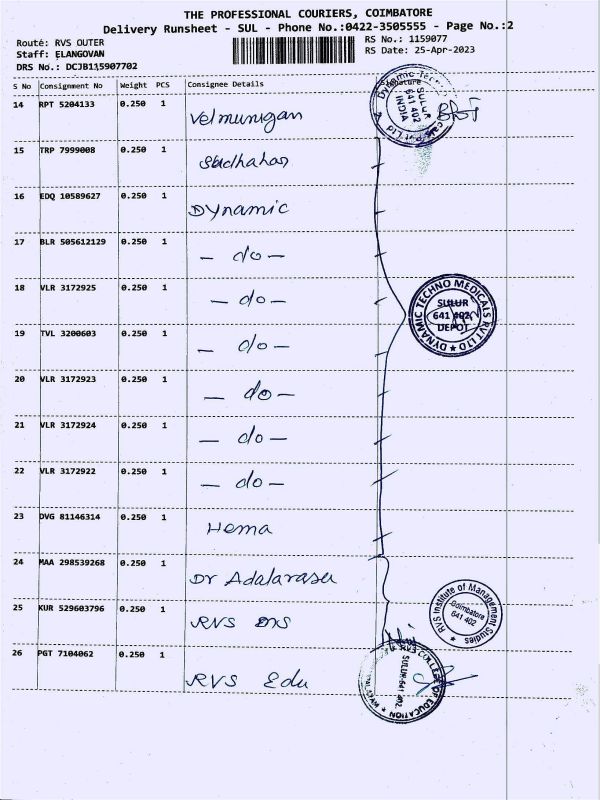 THE PROFESSIONAL COURIERS, COIMBATORE
Delivery Runsheet - SUL - Phone No.:0422-3505555 - Page No.:2
Route: RVS OUTER
RS No.: 1159077
Staff: ELANGOVAN
RS Date: 25-Apr-2023
DRS No.: DCJB115907702
S No Consignment No Weight PCS Consignee Details Signature
14 RPT 5204133 0.250 1 Velmurugan
SULUR
641 402
INDIA
15 TRP 7999008 0.250 1 Sudhahar
16 EDQ 10589627 0.250 1 Dynamic
17 BLR 505612129 0.250 1 - do -
18 VLR 3172925 0.250 1 - do -
DYNAMIC TECHNO MEDICALS PVT LTD
SULUR
641 402
DEPOT
19 TVL 3200603 0.250 1 - do -
20 VLR 3172923 0.250 1 - do -
21 VLR 3172924 0.250 1 - do -
22 VLR 3172922 0.250 1 - do -
23 DVG 81146314 0.250 1 Hema
24 MAA 298539268 0.250 1 Dr Adalarasu
25 KUR 529603796 0.250 1 RVS
RVS Institute of Management Studies
Coimbatore
641 402
26 PGT 7104062 0.250 1 RVS Edu
RVS COLLEGE OF EDUCATION
SULUR-641 402.